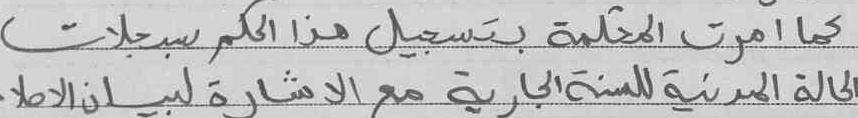 كما أمرت المحكمة بتسجيل هذا الحكم بسجلات
الحالة المدنية للسنة الجارية مع الاشارة لبيان الاصلا